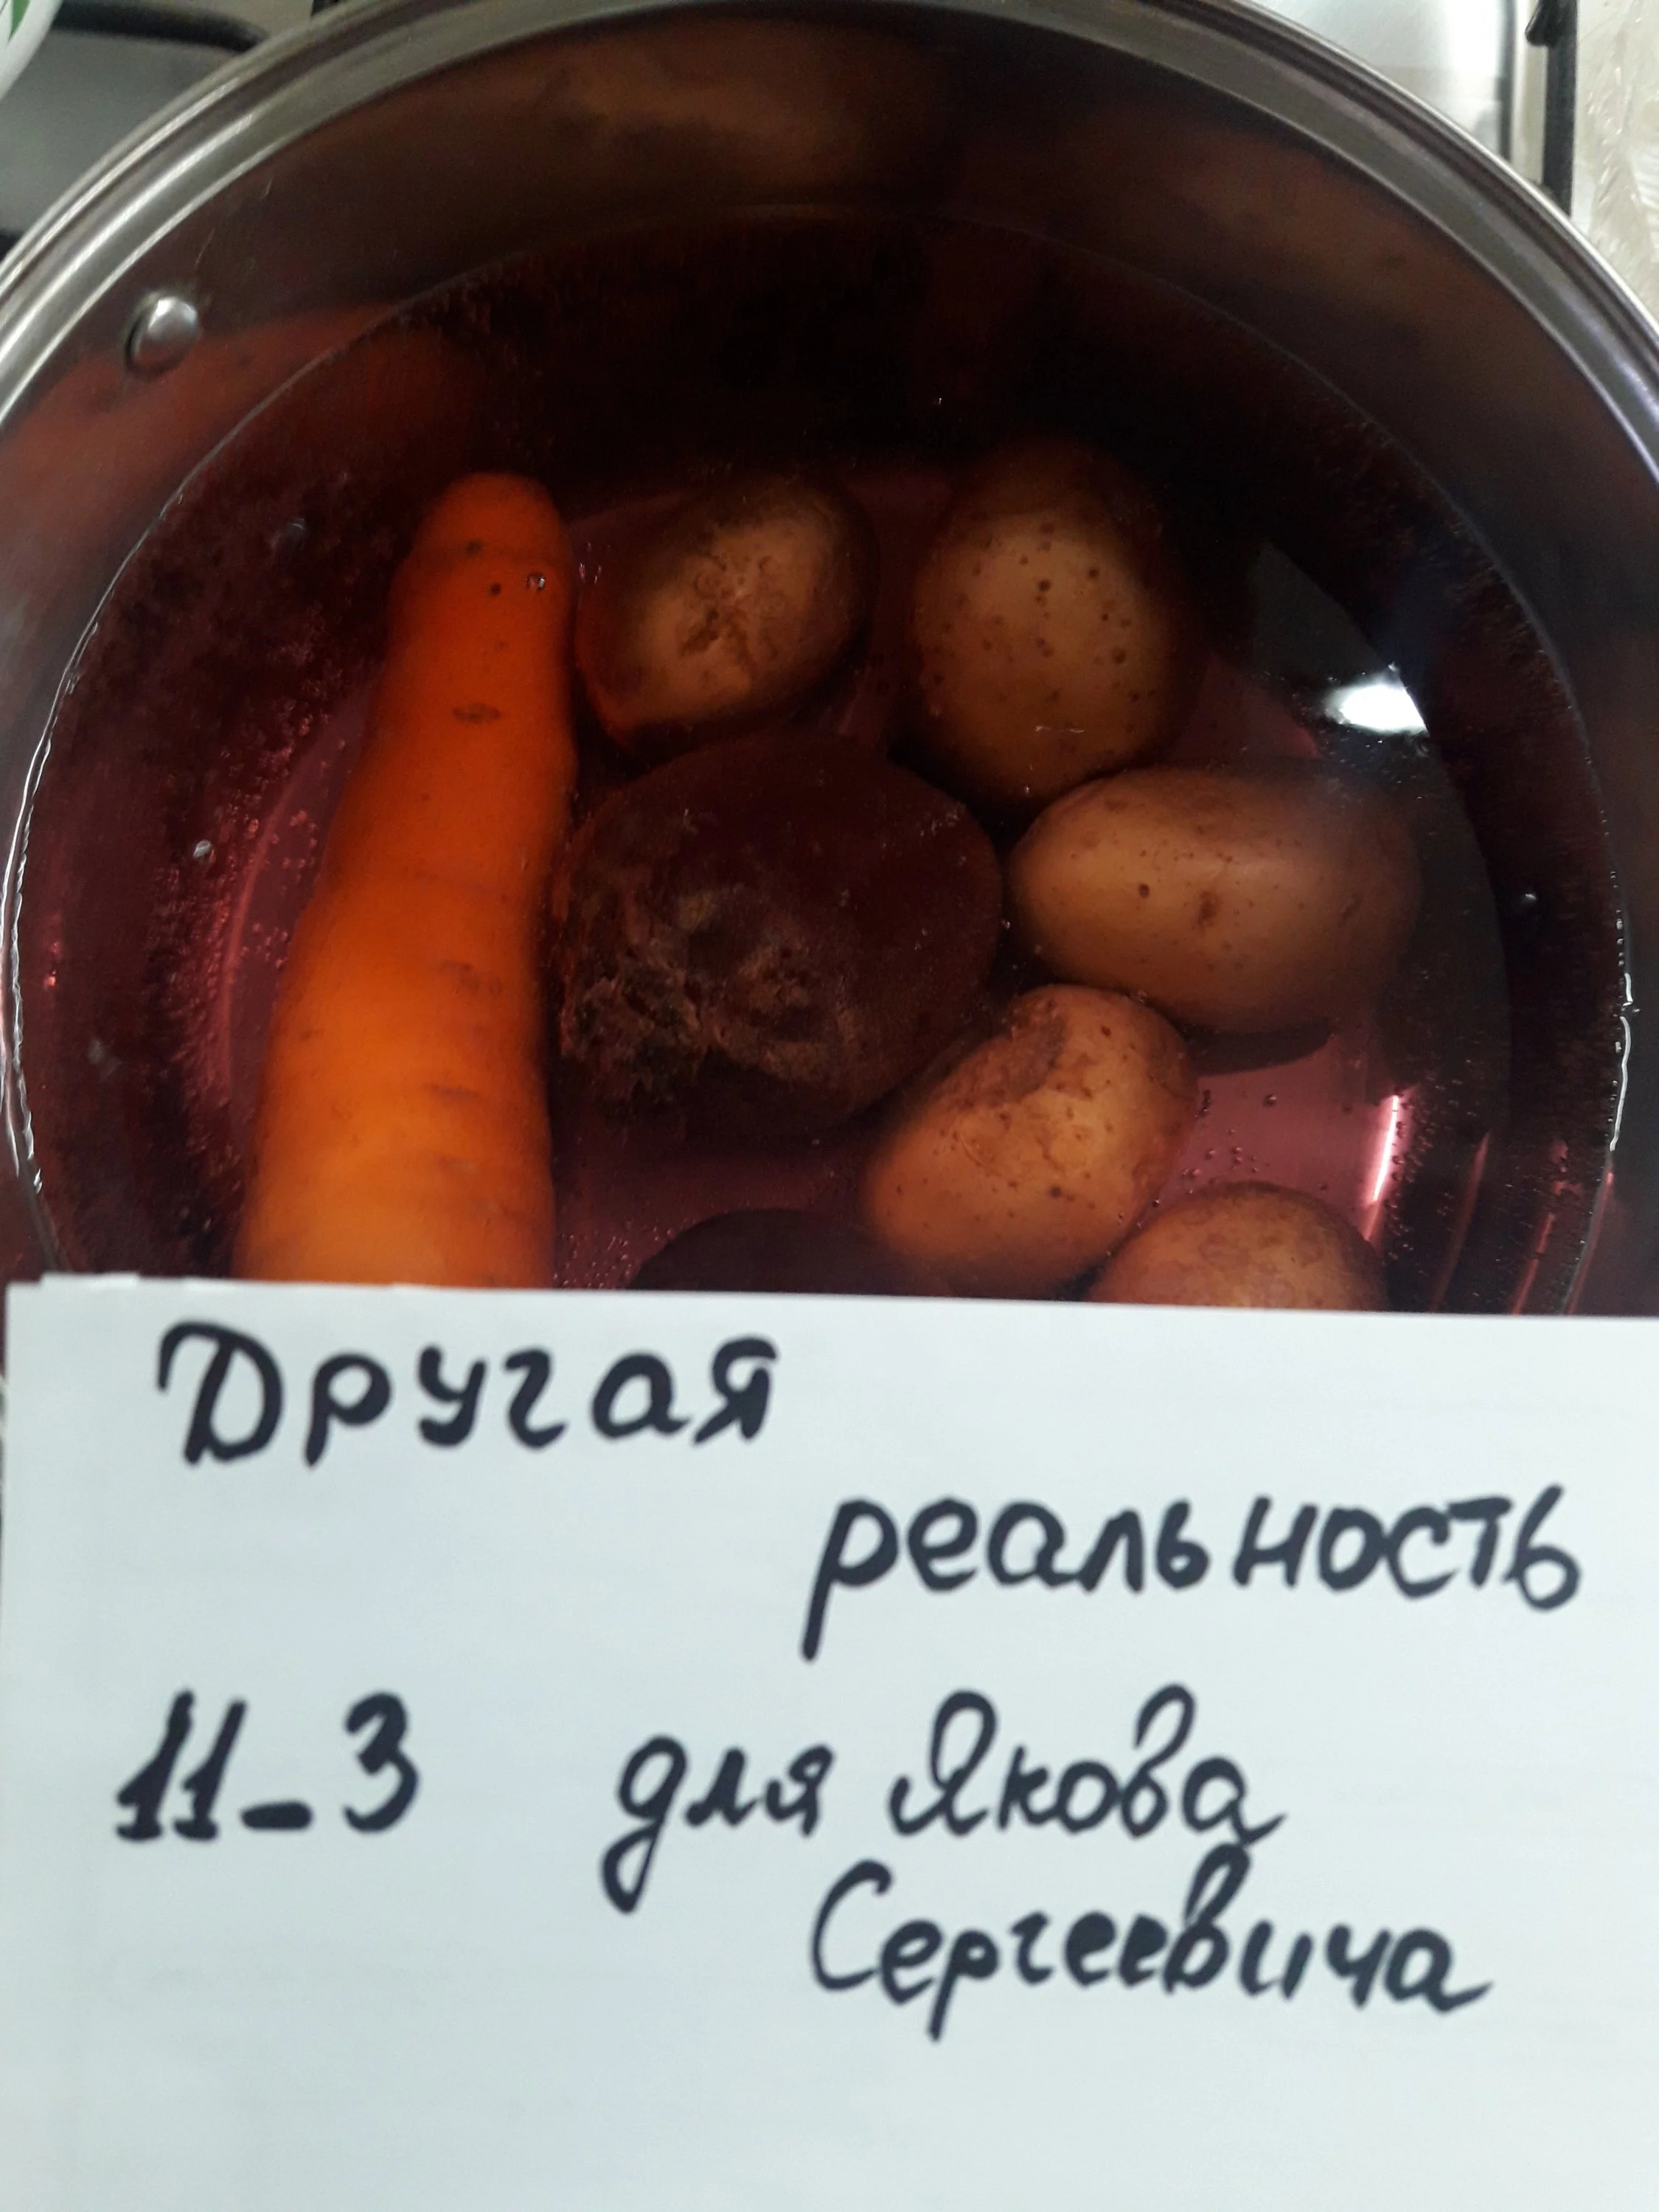 Другая
реальность
11_3 для Якова
Сергеевича